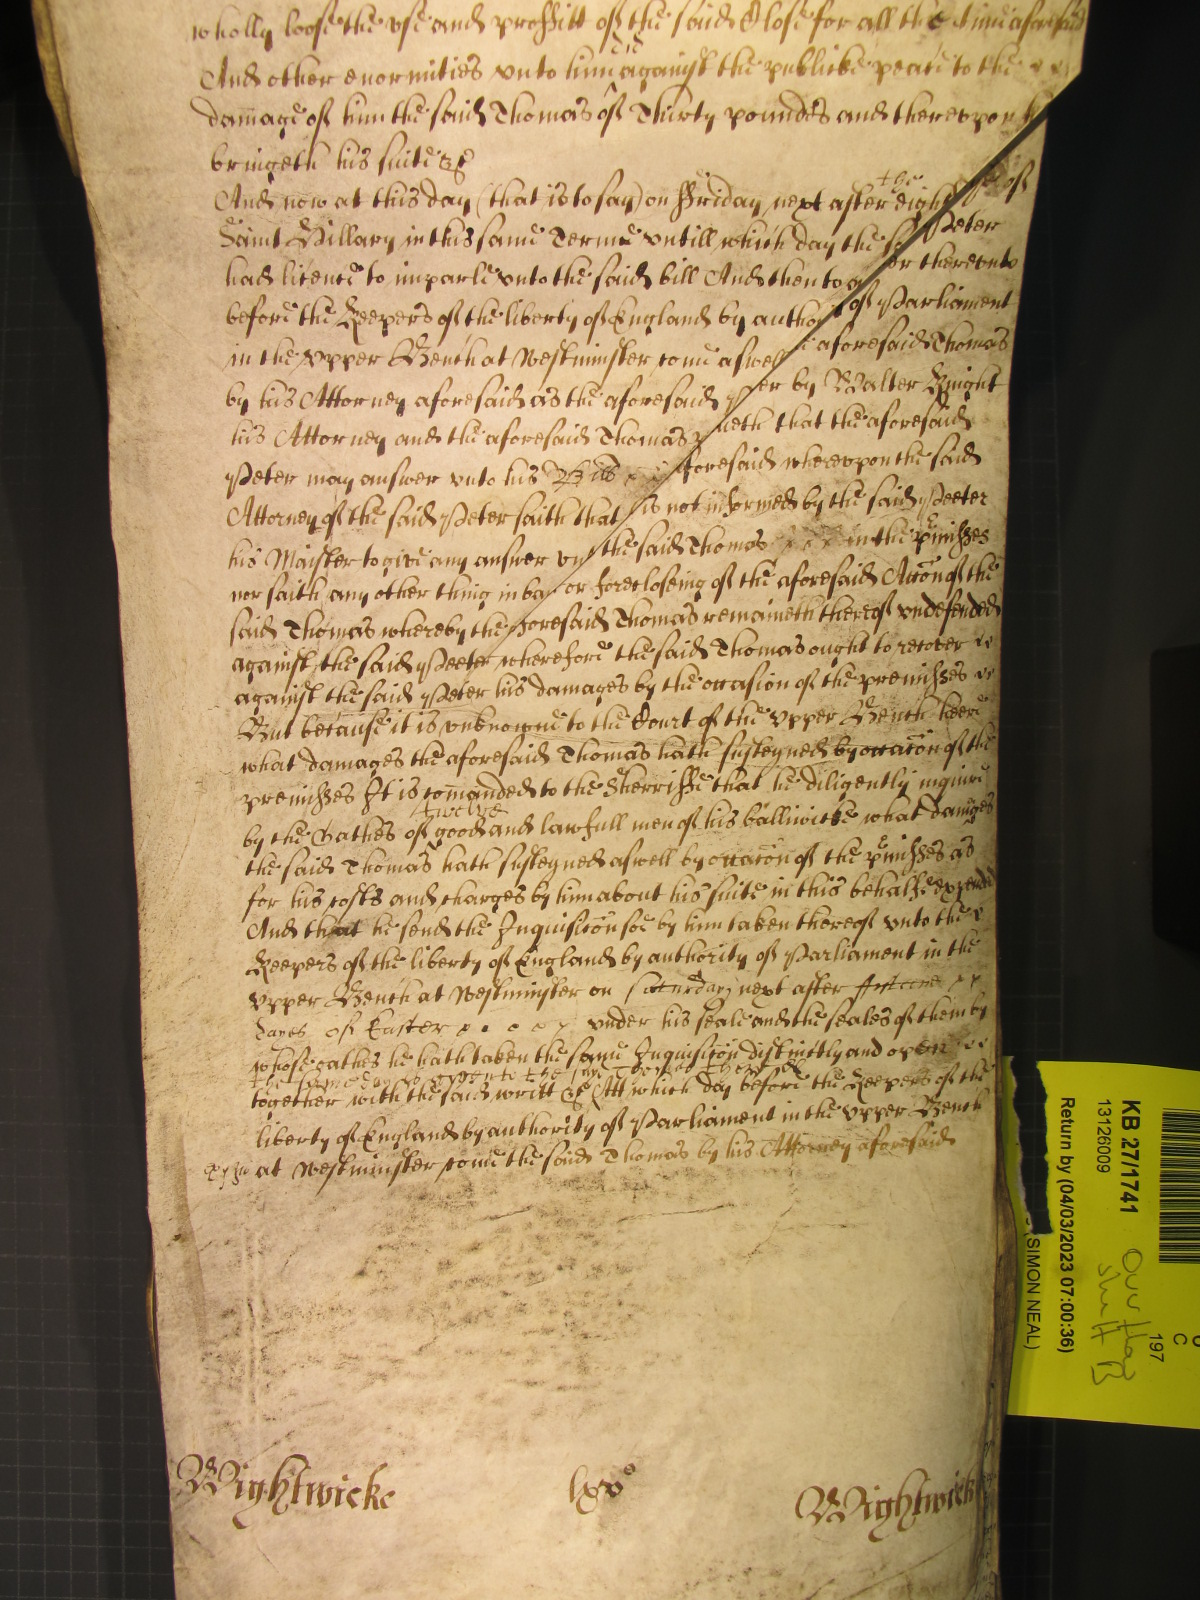 wholly loose the vse and proffitt of the said Close for all the time aforesaid
And other enormities vnto him &c against the publicke peace to the
damage of him the said Thomas of Thirty poundes and therevpon
bringeth his suite &c
And now at this day (that is to say) on ffriday next after the eight of
Saint Hillary in this same Terme vntill which day the Peter
had licence to imparle vnto the said bill And then to therevnto
before the Keepers of the liberty of England by of Parliament
in the vpper Bench at Westminster come aswell aforesaid Thomas
by his Attorney aforesaid as the aforesaid by Walter Knight
his Attorney and the aforesaid Thomas that the aforesaid
Peter may answer vnto his Bill aforesaid wherevpon the said
Attorney of the said Peter saith that is not informed by the said Peeter
his Maister to give any answer the said Thomas in the p̃misses
nor saith any other thing in bar or forecloseing of the aforesaid Acc̃on of the
said Thomas whereby the foresaid Thomas remaineth thereof vndefended
against the said Peeter wherefore the said Thomas ought to recover
against the said Peter his damages by the occasion of the premisses
But because it is vnknowne to the Court of the vpper Bench heere
what damages the aforesaid Thomas hath susteyned by occac̃on of the
premisses It is com̃anded to the Sherriffe that he diligently inquire
by the Oathes of twelve good and lawfull men of his balliwicke what damages
the said Thomas hath susteyned aswell by occac̃on of the p̃misses as
for his costs and charges by him about his suite in this behalfe expended
And that he send the Inquisic̃on soe by him taken thereof vnto the
Keepers of the liberty of England by authority of Parliament in the
vpper Bench at Westminster on Saturday next after
of Easter vnder his seale and the seales of them by
whose oathes he hath taken the same Inquisic̃on distinctly and open
the same the said Thomas
together with the said writt &c Att which day before the Keepers of the
liberty of England by authority of Parliament in the vpper Bench
at Westminster come the said Thomas by his Attorney aforesaid
Wightwicke lxvo Wightwick
KB 27/1741
13126009
Return by (04/03/2023 07:00:36)
(SIMON NEAL)
197
C